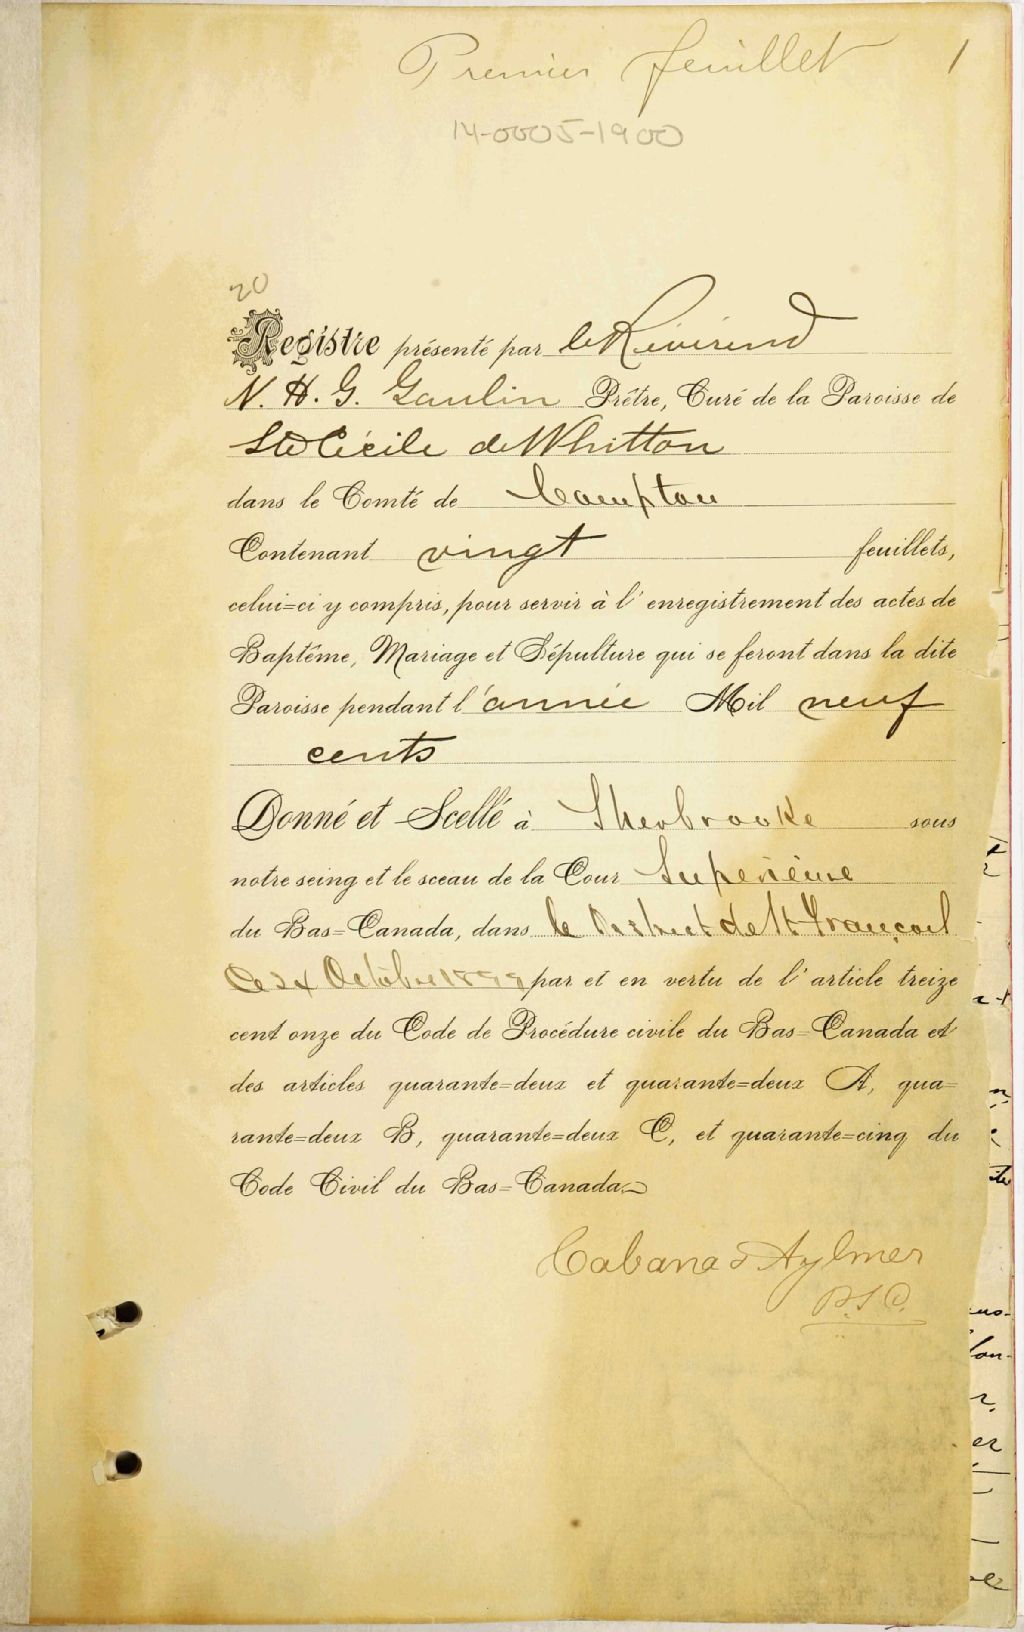 Premier feuillet 1
14-0005-1900
20
Registre présenté par le Révérend
N. H. G. Gaulin Prêtre, Curé de la Paroisse de
Ste Cécile de Whitton
dans le Comté de Compton
Contenant vingt feuillets,
celui=ci y compris, pour servir à l'enregistrement des actes de
Baptême, Mariage et Sépulture qui se feront dans la dite
Paroisse pendant l'année Mil neuf
cents
Donné et Scellé à Sherbrooke sous
notre seing et le sceau de la Cour Supérieure
du Bas=Canada, dans le District de St François
Ce 24 Octobre 1899 par et en vertu de l'article treize
cent onze du Code de Procédure civile du Bas=Canada et
des articles quarante=deux et quarante=deux A, qua=
rante=deux B, quarante=deux C, et quarante=cinq du
Code Civil du Bas=Canada
Cabana & Aylmer
P.S.C.